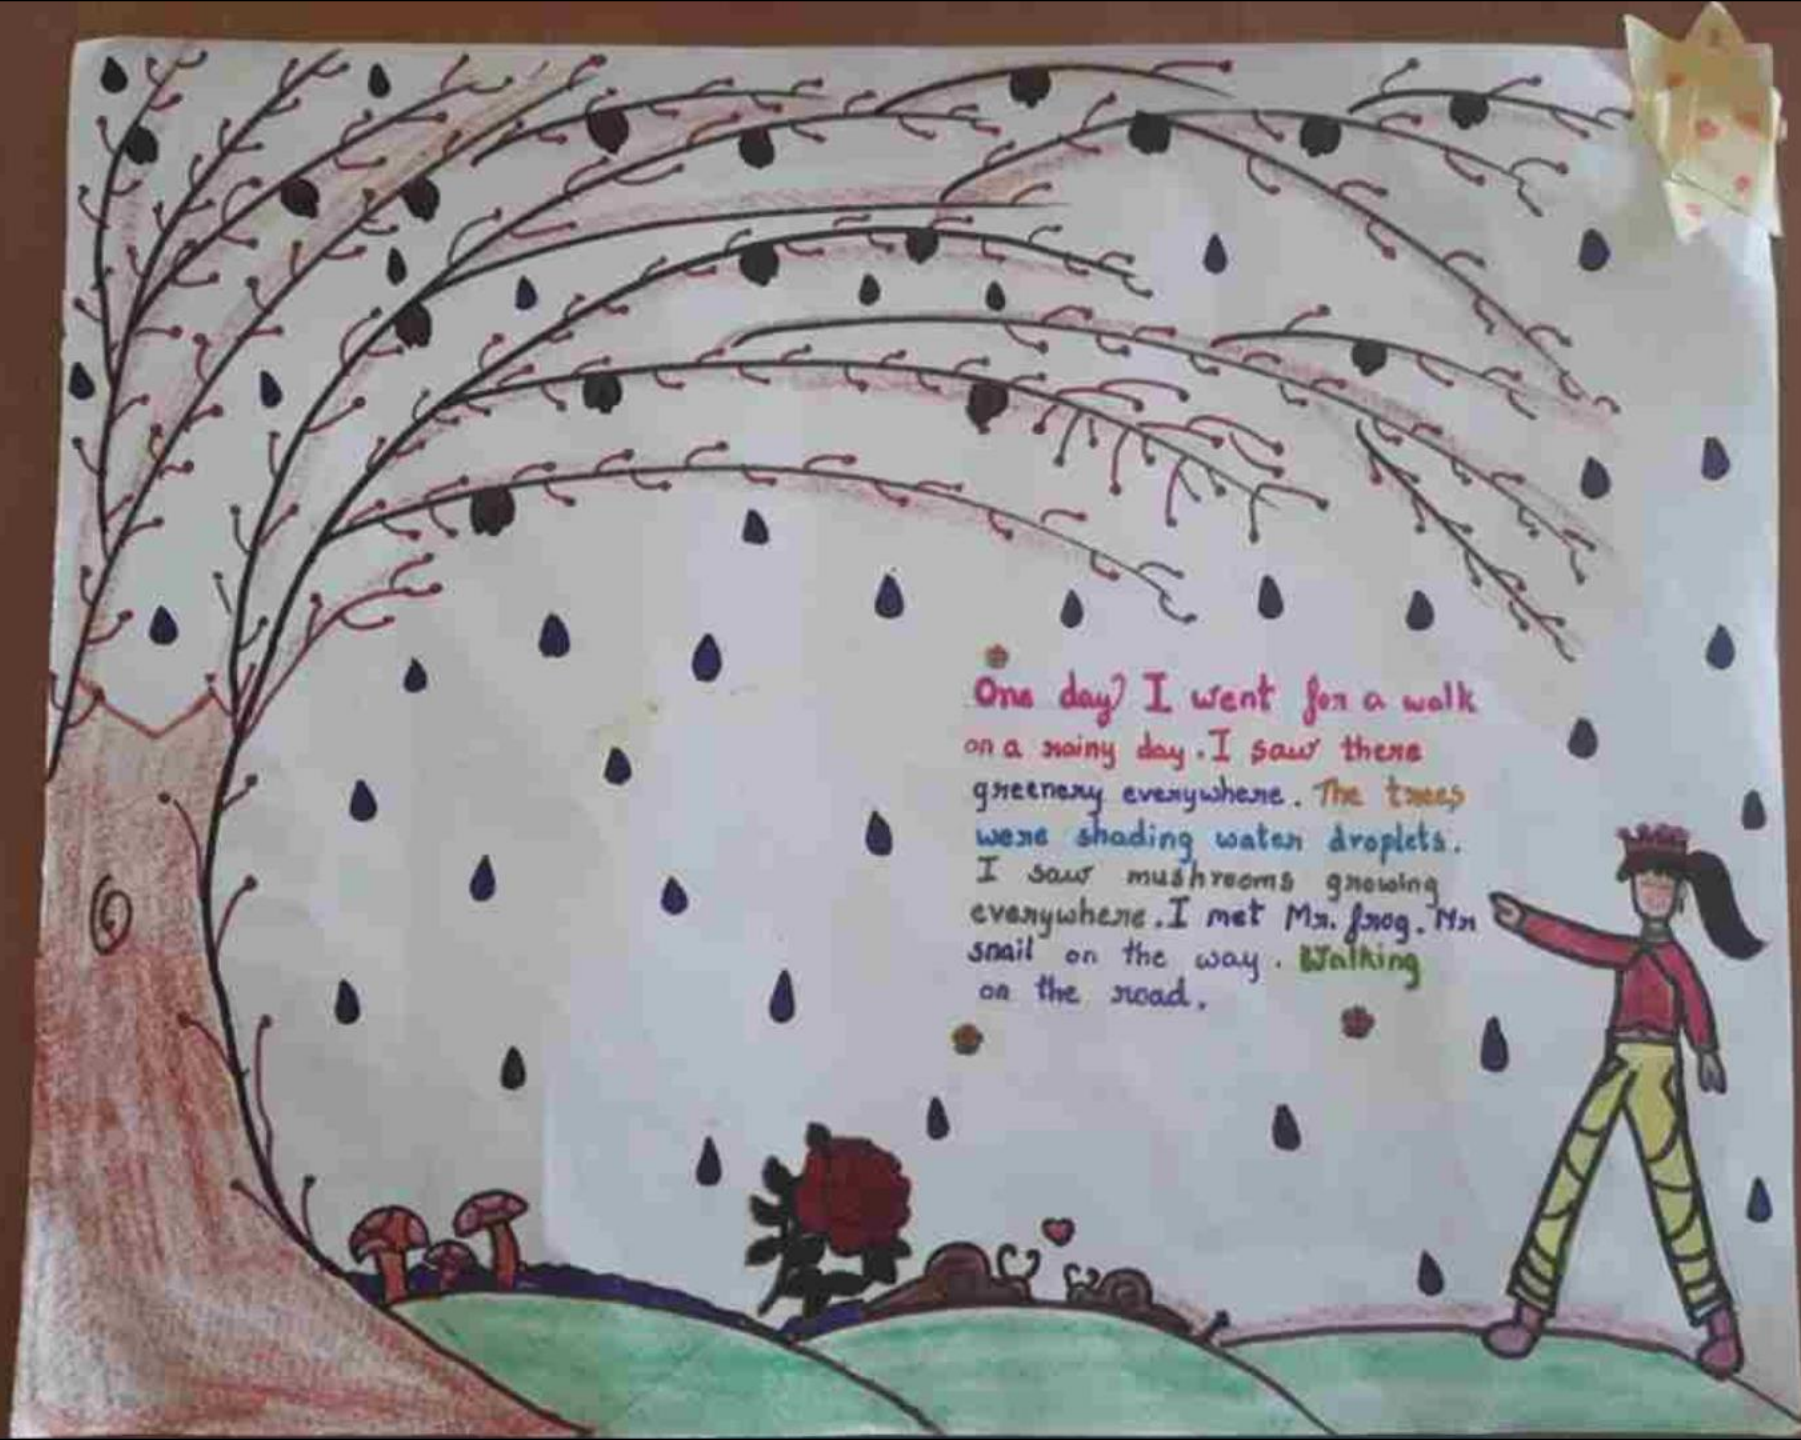 One day, I went for a walk
on a rainy day. I saw there
greenery everywhere. The trees
were shading water droplets.
I saw mushrooms growing
everywhere. I met Mr. frog. Mr
snail on the way. Walking
on the road.